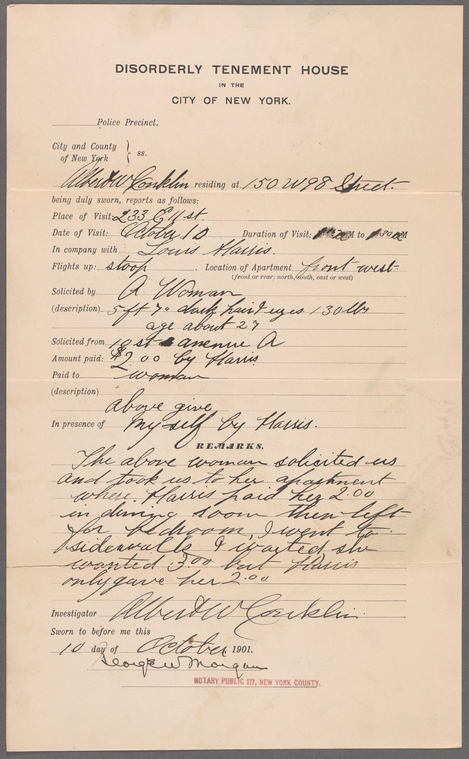 DISORDERLY TENEMENT HOUSE
IN THE
CITY OF NEW YORK.
Police Precinct.
City and County
of New York } ss.
Albert W Conklin residing at 150 W 98 Street.
being duly sworn, reports as follows:
Place of Visit: 233 E 11 st
Date of Visit: Octob. 10 Duration of Visit: M to M
In company with Louis Harris.
Flights up: stoop. Location of Apartment front west.
(front or rear; north, south, east or west)
Solicited by A Woman
(description) 5 ft 7" dark hair & eyes 130 lbs
age about 27
Solicited from 10 st avenue A
Amount paid: $2.00 by Harris
Paid to woman
(description)
above give
In presence of My self by Harris.
REMARKS.
The above woman solicited us
and took us to her apartment
where Harris paid her 2.00
in dining room then left
for bedroom, I went to
sidewalk & waited she
wanted 3.00 but Harris
only gave her 2.00
Investigator Albert W Conklin.
Sworn to before me this
10 day of October 1901.
George W Morgan
NOTARY PUBLIC 177, NEW YORK COUNTY.